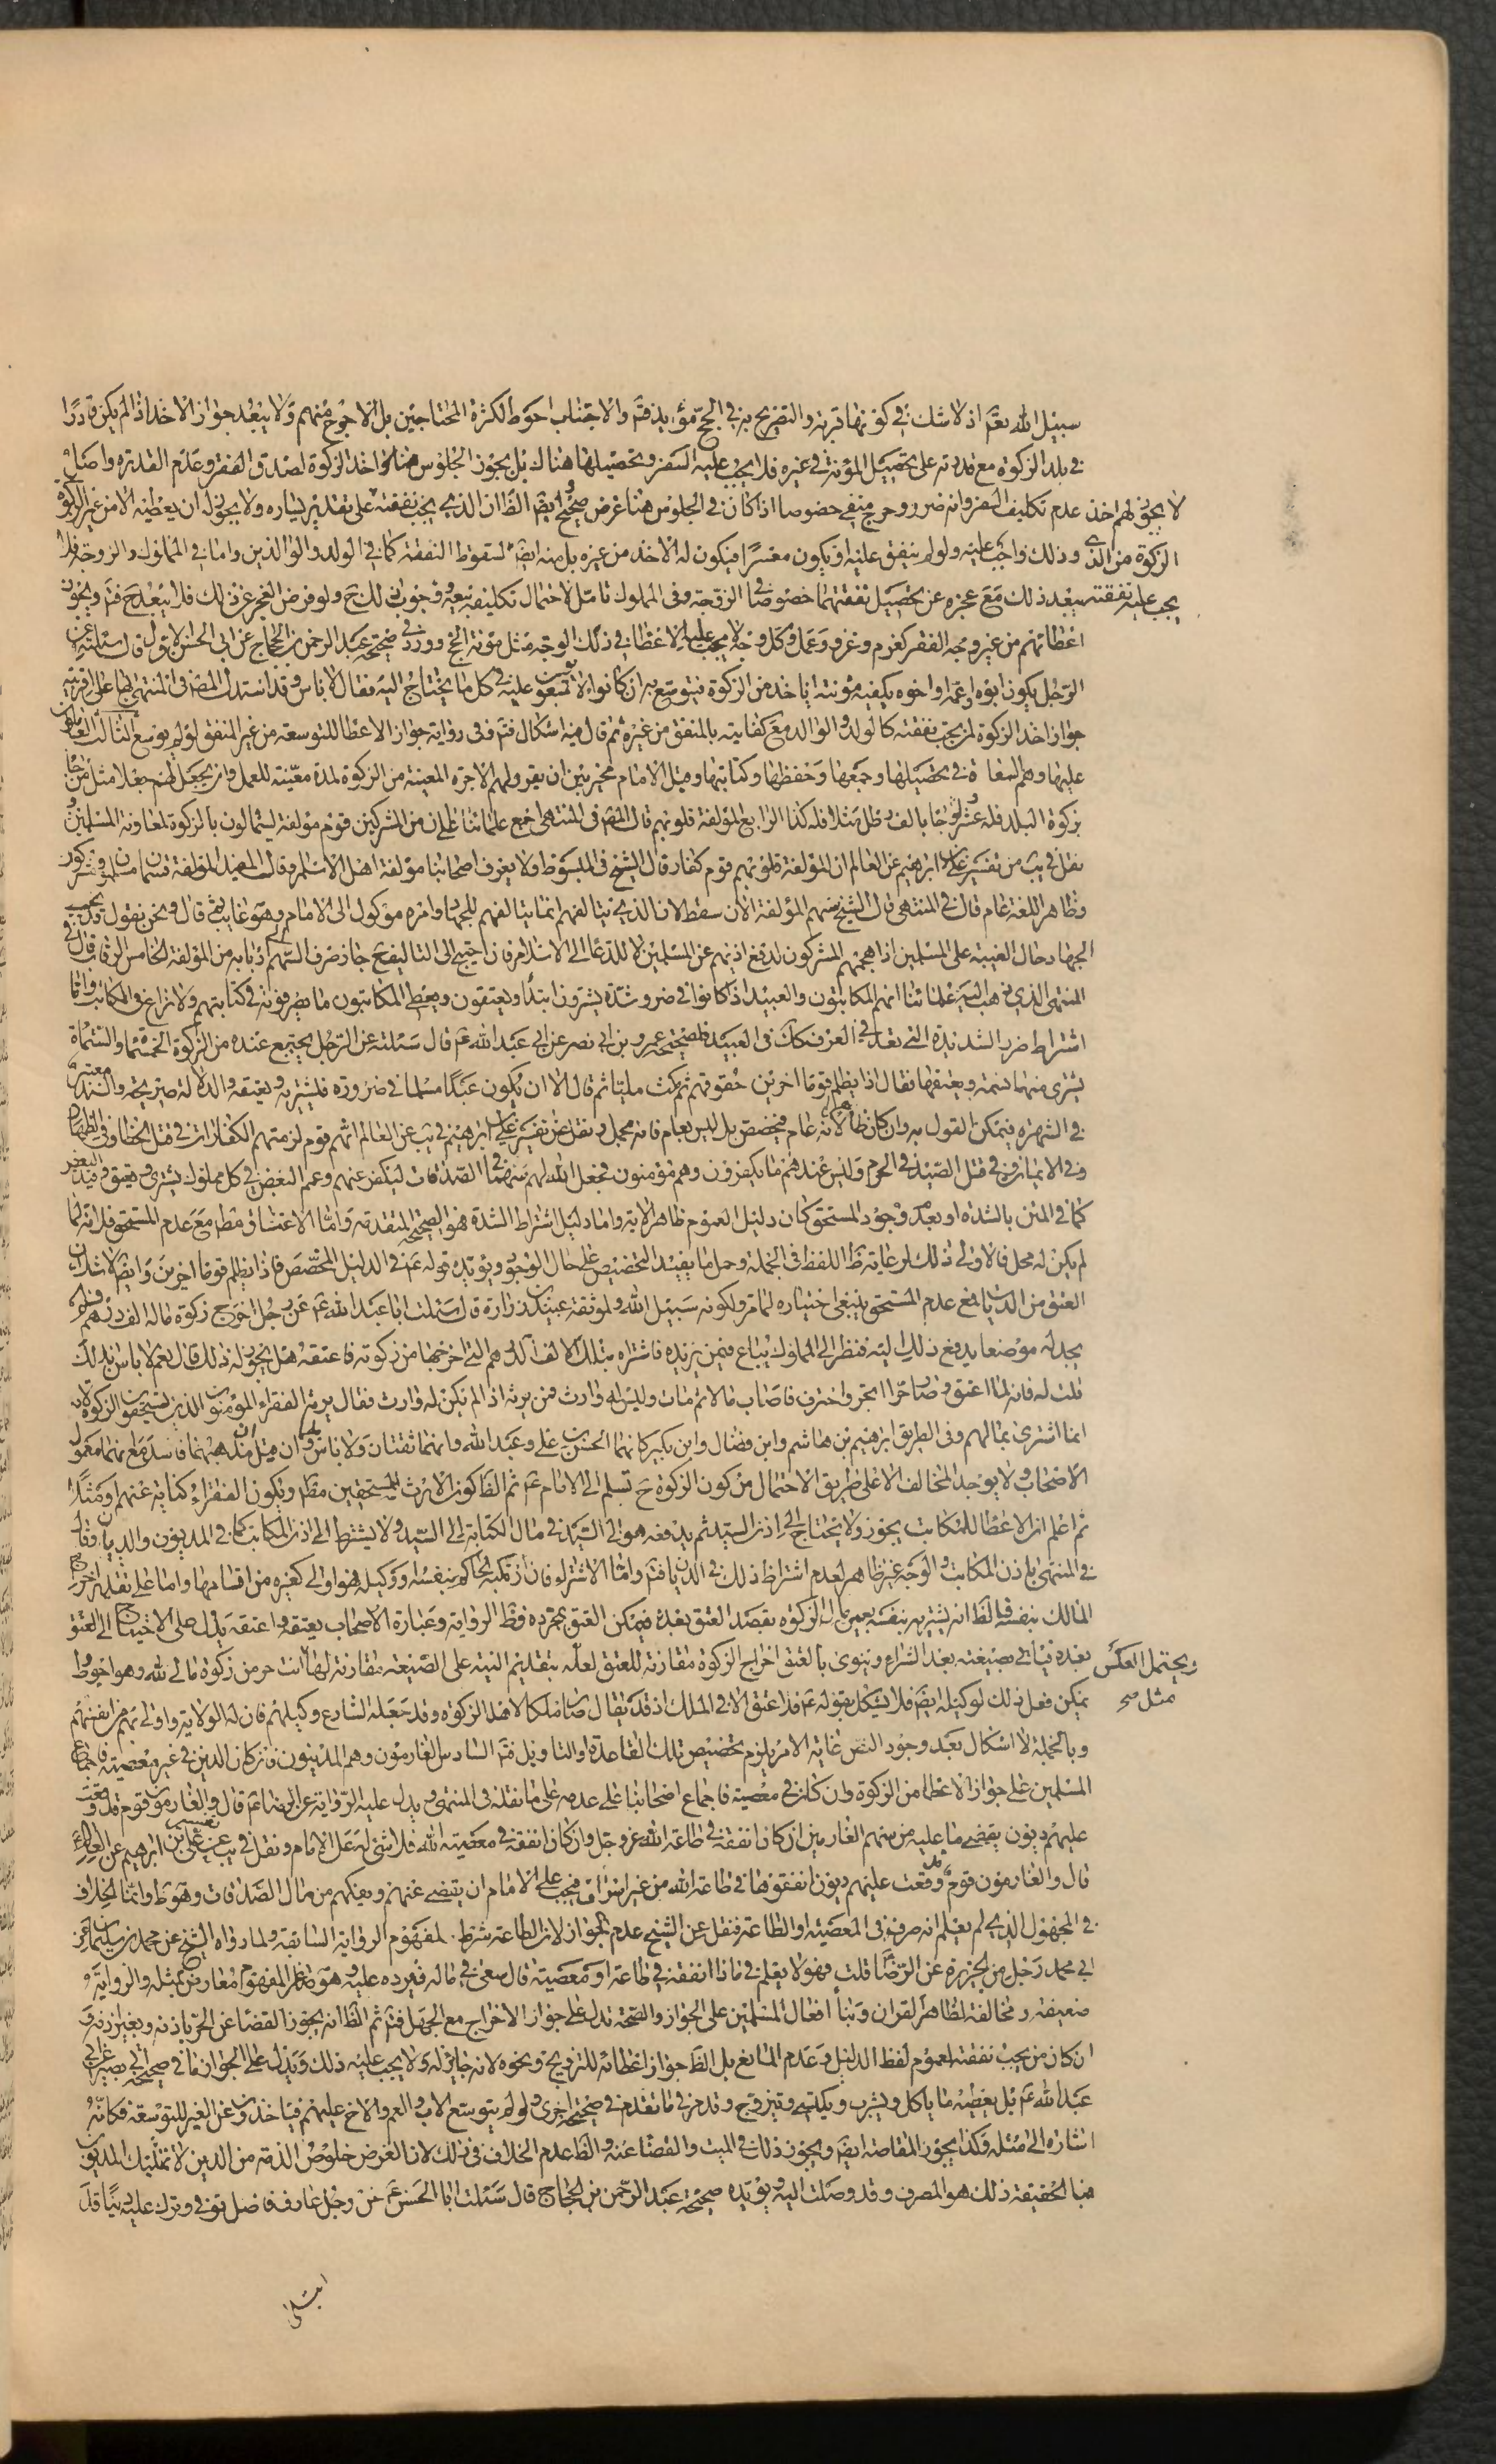 سبيل الله نعم اذ لا شك في كونها قربة والتصريح به في الحج مؤيد فتم والاجتناب احوط لكثرة المحتاجين بل الاحوج منهم ولا يبعد جواز الاخذ اذا لم يكن قادرا
في بلد الزكوة مع قدرته على تحصيل المؤنة في غيره فلا يجب عليه السفر وتحصيلها هناك بل يجوز الجلوس هنا واخذ الزكوة لصدق الفقر وعدم القدرة واصل
عدم تكليف السفر وانه ضرر وحرج منفي خصوصا اذا كان في الجلوس هنا غرض صحيح وايضا الظ ان الذي يجب نفقته على تقدير يساره ولا يجوز له ان يعطيه الا من غير الزكوة
لا يجوز لهم اخذ الزكوة من الذي وذلك واجب عليه ولو لم ينفق عليه او يكون معسرا فيكون له الاخذ من غيره بل منه ايضا لسقوط النفقة كما في الولد والوالدين واما في المملوك والزوجة فلا
يجب عليه نفقته يبعد ذلك مع عجزه عن تحصيل نفقتهما خصوصا في الزوجة وفي المملوك تامل لاحتمال تكليفه ببيعه ووجوب ذلك ح ولو فرض العجز عن ذلك فلا يبعد ح فتم ويجوز
اعطائهم من غير وجه الفقر كغرم وغزو وعمل وكل وجه لا يجب عليه الاعطا في ذلك الوجه مثل مؤنة الحج وورد في صحيحة عبد الرحمن بن الحجاج عن ابي الحسن الاول قال سئلته عن
الرجل يكون ابوه او عمه او اخوه يكفيه مؤنته ايأخذ من الزكوة فيتوسع به ان كانوا لا يوسعون عليه في كل ما يحتاج اليه فقال لا باس وقد استدل المص في المنتهى بها على اقربية
جواز اخذ الزكوة لمن يجب نفقته كالولد والوالد مع كفايته بالمنفق من غيره ثم قال فيه اشكال فتم وفي رواية جواز الاعطا للتوسعة من غير المنفق لو لم يوسع الثالث العاملون
عليها وهم السعاة في تحصيلها وجمعها وحفظها وكتابتها وقيل الامام مخير بين ان يقرر لهم الاجرة المعينة من الزكوة لمدة معينة للعمل وان يجعل لهم جعلا مثل من جاء
بزكوة البلد فله عشر او جاء بالف رطل مثلا فله كذا الرابع المؤلفة قلوبهم قال المص في المنتهى اجمع علمائنا على ان من المشركين قوم مؤلفة ليستمالون بالزكوة لمعاونة المسلمين و
نقل في يب من تفسير علي بن ابرهيم عن العالم ان المؤلفة قلوبهم قوم كفار قال الشيخ في المبسوط ولا يعرف اصحابنا مؤلفة اهل الاسلام وقال المفيد المؤلفة قسمان مسلمون ومشركون
وظاهر اللغة عام قال في المنتهى قال الشيخ سهم المؤلفة الان سقط لان الذي يتالفهم انما يتالفهم للجهاد وامره موكول الى الامام وهو غايب ثم قال ونحن نقول قد يجب
الجهاد حال الغيبة على المسلمين اذا هجمهم المشركون لدفع اذيتهم عن المسلمين لا للدعاء الى الاسلام فان احتيج الى التاليف ح جاز صرف السهم اربابه من المؤلفة الخامس الرقاب قال في
المنتهى الذي ذهب اليه علمائنا انهم المكاتبون والعبيد اذا كانوا في ضر وشدة يشترون ابتداء ويعتقون ويعطى المكاتبون ما يصرفونه في كتابتهم ولا نزاع في المكاتب واما
اشتراط ضر الشديدة التي تعد في العرف كك في العبيد فلصحيحة عمرو بن ابي نصر عن ابي عبد الله ع قال سئلته عن الرجل يجتمع عنده من الزكوة الخمسمائة والستمائة
يشترى منها نسمة ويعتقها فقال اذا يظلم قوما اخرين حقوقهم ثم مكث مليا ثم قال الا ان يكون عبدا مسلما في ضرورة فليشتريه ويعتقه والدلالة صريحة والسند معتبر
في الشهرة فيمكن القول به وان كان ظاهر الاية عام فيخصص بل ليس بعام فانه مجمل ونقل عن تفسير علي بن ابرهيم في يب عن العالم انهم قوم لزمتهم الكفارات في قتل الخطا وفي الظهار
وفي الايمان وفي قتل الصيد في الحرم وليس عندهم ما يكفرون وهم مؤمنون فجعل الله لهم سهما في الصدقات ليكفر عنهم وعمم البعض في كل مملوك يشترى ويعتق وقيد البعض
كما في المتن بالشدة او بعدم وجود المستحق كان دليل العموم ظاهر الاية واما دليل اشتراط الشدة فهو الصحيحة المتقدمة واما الاعتاق مطلقا مع عدم المستحق فلانه لما
لم يكن له محل فالاولى ذلك لرعاية ظ اللفظ في الجملة وحمل ما يفيد التخصيص على حال الوجود ويؤيده قوله ع في الدليل المخصص فاذا يظلم قوما اخرين وايضا لا شك ان
العتق من القربات فمع عدم المستحق ينبغي اختياره لما مر ولكونه سبيل الله ولموثقة عبيد بن زرارة قال سئلت ابا عبد الله ع عن رجل اخرج زكوة ماله الف درهم فلم
يجد له موضعا يدفع ذلك اليه فنظر الى المملوك يباع فيمن يزيده فاشتراه بتلك الالف الدرهم التي اخرجها من زكوته فاعتقه هل يجوز له ذلك قال نعم لا باس بذلك
قلت له فانه لما اعتق وصار حرا اتجر واحترف فاصاب مالا ثم مات وليس له وارث فمن يرثه اذا لم يكن له وارث فقال يرثه الفقراء المؤمنون الذين يستحقون الزكوة لانه
انما اشترى بمالهم وفي الطريق ابرهيم بن هاشم وابن فضال وابن بكير كانهما الحسن بن علي وعبد الله وانهما ثقتان ولا باس بهما وان قيل ان مذهبهما فاسد مع انها معمول
الاصحاب ولا يوجد المخالف الا على طريق الاحتمال من كون الزكوة ح تسلم الى الامام ع ثم الظ كون الارث للمستحقين مطلقا ويكون الفقراء كناية عنهم او مثلا
ثم اعلم ان الاعطا للمكاتب يجوز ولا يحتاج الى اذن السيد ثم يدفعه هو الى السيد في مال الكتابة الى السيد ولا يشترط الى اذن المكاتب كما في المديون والديان وقال
في المنتهى باذن المكاتب والوجه غير ظاهر لعدم اشتراط ذلك في الدين فتم واما الاشتراء فان ارتكبه الحاكم بنفسه او وكيله فهو اولى كغيره من اقسامها واما على تقدير اخراج
المالك بنفسه فالظ انه يشتريه بنفسه بعين مال الزكوة بقصد العتق بعده فيمكن العتق بمجرده وظ الرواية وعبارة الاصحاب يعتقه واعتقه يدل على الاحتياج الى العتق
بعده فيأتي بصيغته بعد الشراء وينوي بالعتق اخراج الزكوة مقارنة للعتق لعله بتقديم النية على الصيغة مقارنة لها انت حر من زكوة مالي لله وهو احوط
ويحتمل العكس مثل صح
يمكن فعل ذلك لوكيله ايضا فلا يشكل بقوله ع فلا عتق الا في الملك اذ قد يقال صار ملكا لاهل الزكوة وقد جعله الشارع وكيلهم فان له الولاية واولى بهم من انفسهم
وبالجملة لا اشكال بعد وجود النص غاية الامر يلزم تخصيص تلك القاعدة او التاويل فتم السادس الغارمون وهم المدينون فان كان الدين في غير معصية فاجماع
المسلمين على جواز الاعطا من الزكوة وان كان في معصية فاجماع اصحابنا على عدمه على ما نقله في المنتهى ويدل عليه الرواية عن الرضا ع قال والغارمون قوم قد وقعت
عليهم ديون يقضى ما عليه من سهم الغارمين ان كان انفقه في طاعة الله عز وجل وان كان انفقه في معصية الله فلا شئ له على الامام ونقل في يب عن تفسير علي بن ابرهيم عن العالم ع
قال والغارمون قوم قد وقعت عليهم ديون انفقوها في طاعة الله من غير اسراف فيجب على الامام ان يقضي عنهم ويفكهم من مال الصدقات وهو ظ وانما الخلاف
في المجهول الذي لم يعلم انه صرفه في المعصية او الطاعة فنقل عن الشيخ عدم الجواز لان الطاعة شرط لمفهوم الرواية السابقة ولما رواه الشيخ عن محمد بن سليمان عن
ابي محمد رجل من الجزيرة عن الرضا قلت فهو لا يعلم في ماذا انفقه في طاعة او معصية قال سعى في ماله فيرده عليه وهو صاغر المفهوم معارض بمثله والرواية
ضعيفة ومخالفة لظاهر القران وبناء افعال المسلمين على الجواز والصحة تدل على جواز الاخراج مع الجهل فتم ثم الظ انه يجوز القضا عن الحي باذنه وبغير اذنه و
ان كان ممن يجب نفقته لعموم لفظ الدليل وعدم المانع بل الظ جواز اعطائه للتزويج ونحوه لانه جايز له ولا يجب عليه ذلك ويدل على الجواز ما في صحيحة ابي بصير عن ابي
عبد الله ع بل يعطيه ما ياكل ويشرب ويكتسي ويتزوج وقد مر في ما تقدم في صحيحة اخرى ولو لم يتوسع الاب والعم والاخ عليهم فياخذون عن الغير للتوسعة فكانه
اشارة الى مثله وكذا يجوز المقاصة ايضا ويجوز ذلك في الميت والقضا عنه والظ عدم الخلاف في ذلك لان الغرض خلوص الذمة من الدين لا تمليك المديون
فبالحقيقة ذلك هو المصرف وقد وصلت اليه ويؤيده صحيحة عبد الرحمن بن الحجاج قال سئلت ابا الحسن ع عن رجل عارف فاضل توفى وترك عليه دينا قد
ابتلى